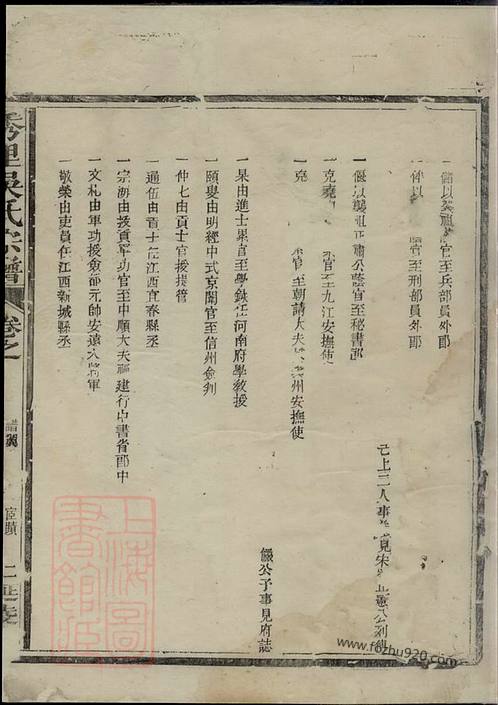 一儲以
官至兵部員外郎
一偁以
官至刑部員外郎
已上二人事
見宋
一偃以襲祖正肅公蔭官至秘書郎
一克堯
官至九江安撫使
一克
官至朝請大夫
州安撫使
儼公子事見府誌
一杲由進士累官至學錄任河南府學教授
一頤叟由明經中式京闈官至信州僉判
一仲七由貢士官授提管
一通伍由
士任江西宜春縣丞
一宗海由
貢軍功官至中順大夫福建行中書省郎中
一文札由軍功授僉都元帥安遠大將軍
一敬榮由吏員任江西新城縣丞
吳氏宗譜
卷之
宦顯
二
上海圖書館藏
www.fozhu920.com